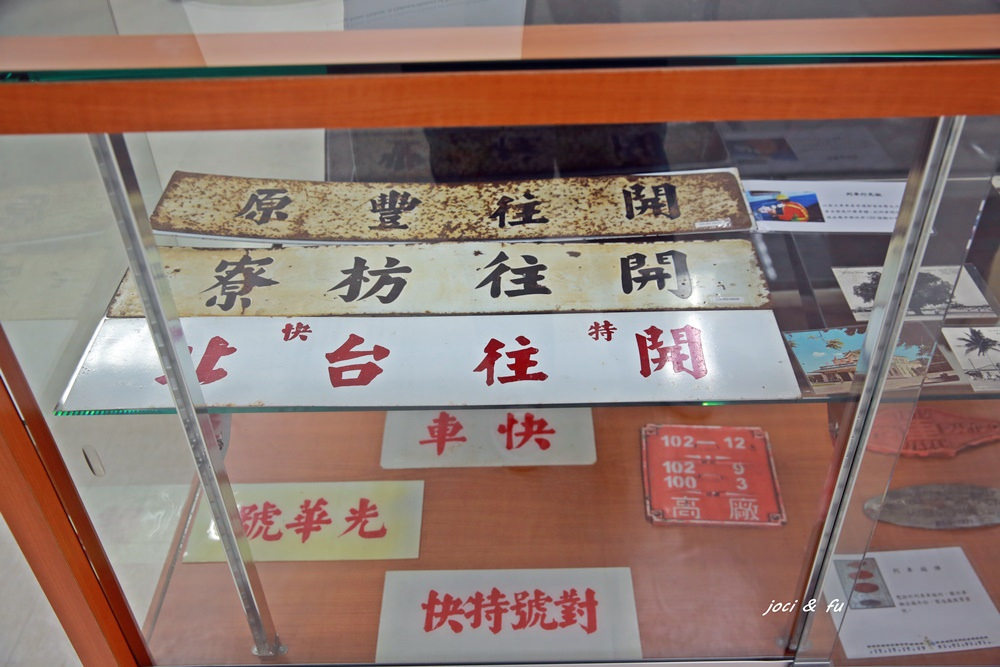 開往豐原
開往枋寮
特快
開往台北
快車
102—12
102 9
100 3
高廠
光華號
對號特快
joci & fu